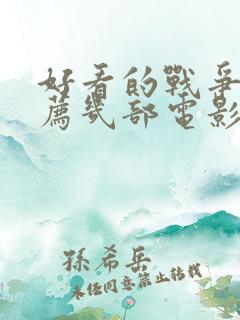 好看的戰爭
薦幾部電影
孫希岳
未經同意禁止轉載